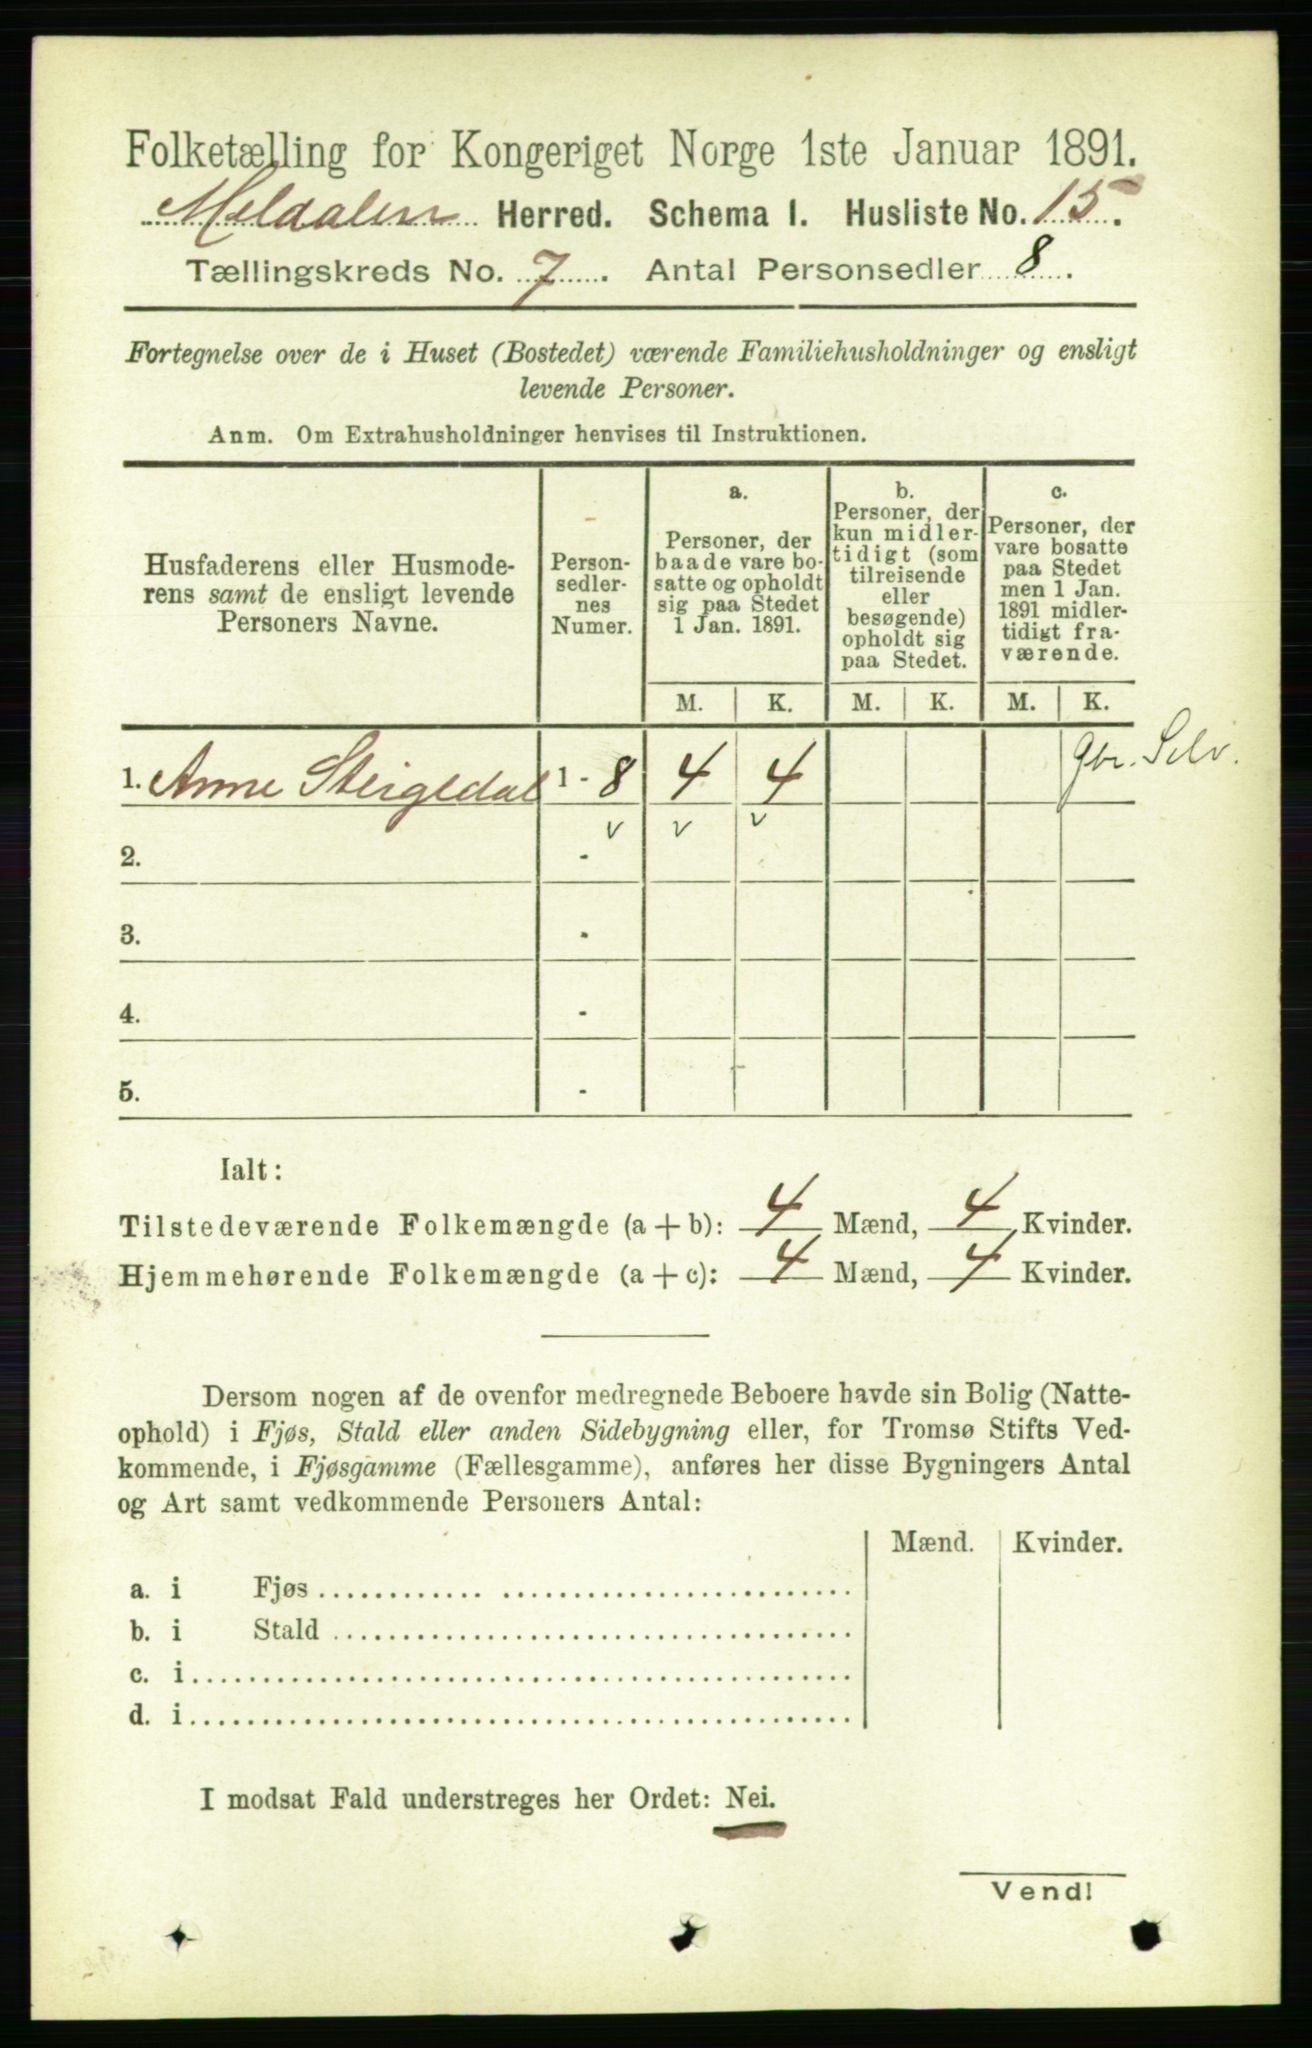 Folketælling for Kongeriget Norge 1ste Januar 1891.
Meldalen Herred. Schema I. Husliste No. 15.
Tællingskreds No. 7. Antal Personsedler 8.
Fortegnelse over de i Huset (Bostedet) værende Familiehusholdninger og ensligt
levende Personer.
Anm. Om Extrahusholdninger henvises til Instruktionen.
Husfaderens eller Husmode-
rens samt de ensligt levende
Personers Navne.
Person-
sedler-
nes
Numer.
a.
Personer, der
baade vare bo-
satte og opholdt
sig paa Stedet
1 Jan. 1891.
b.
Personer, der
kun midler-
tidigt (som
tilreisende
eller
besøgende)
opholdt sig
paa Stedet.
c.
Personer, der
vare bosatte
paa Stedet
men 1 Jan.
1891 midler-
tidigt fra-
værende.
M. K. M. K. M. K.
1. Anne Steigedal 1 - 8 4 4 gbr. Selv.
v v v
2. -
3. -
4. -
5. -
Ialt:
Tilstedeværende Folkemængde (a + b): 4 Mænd, 4 Kvinder.
Hjemmehørende Folkemængde (a + c): 4 Mænd, 4 Kvinder.
Dersom nogen af de ovenfor medregnede Beboere havde sin Bolig (Natte-
ophold) i Fjøs, Stald eller anden Sidebygning eller, for Tromsø Stifts Ved-
kommende, i Fjøsgamme (Fællesgamme), anføres her disse Bygningers Antal
og Art samt vedkommende Personers Antal:
Mænd. Kvinder.
a. i Fjøs
b. i Stald
c. i
d. i
I modsat Fald understreges her Ordet: Nei.
Vend!